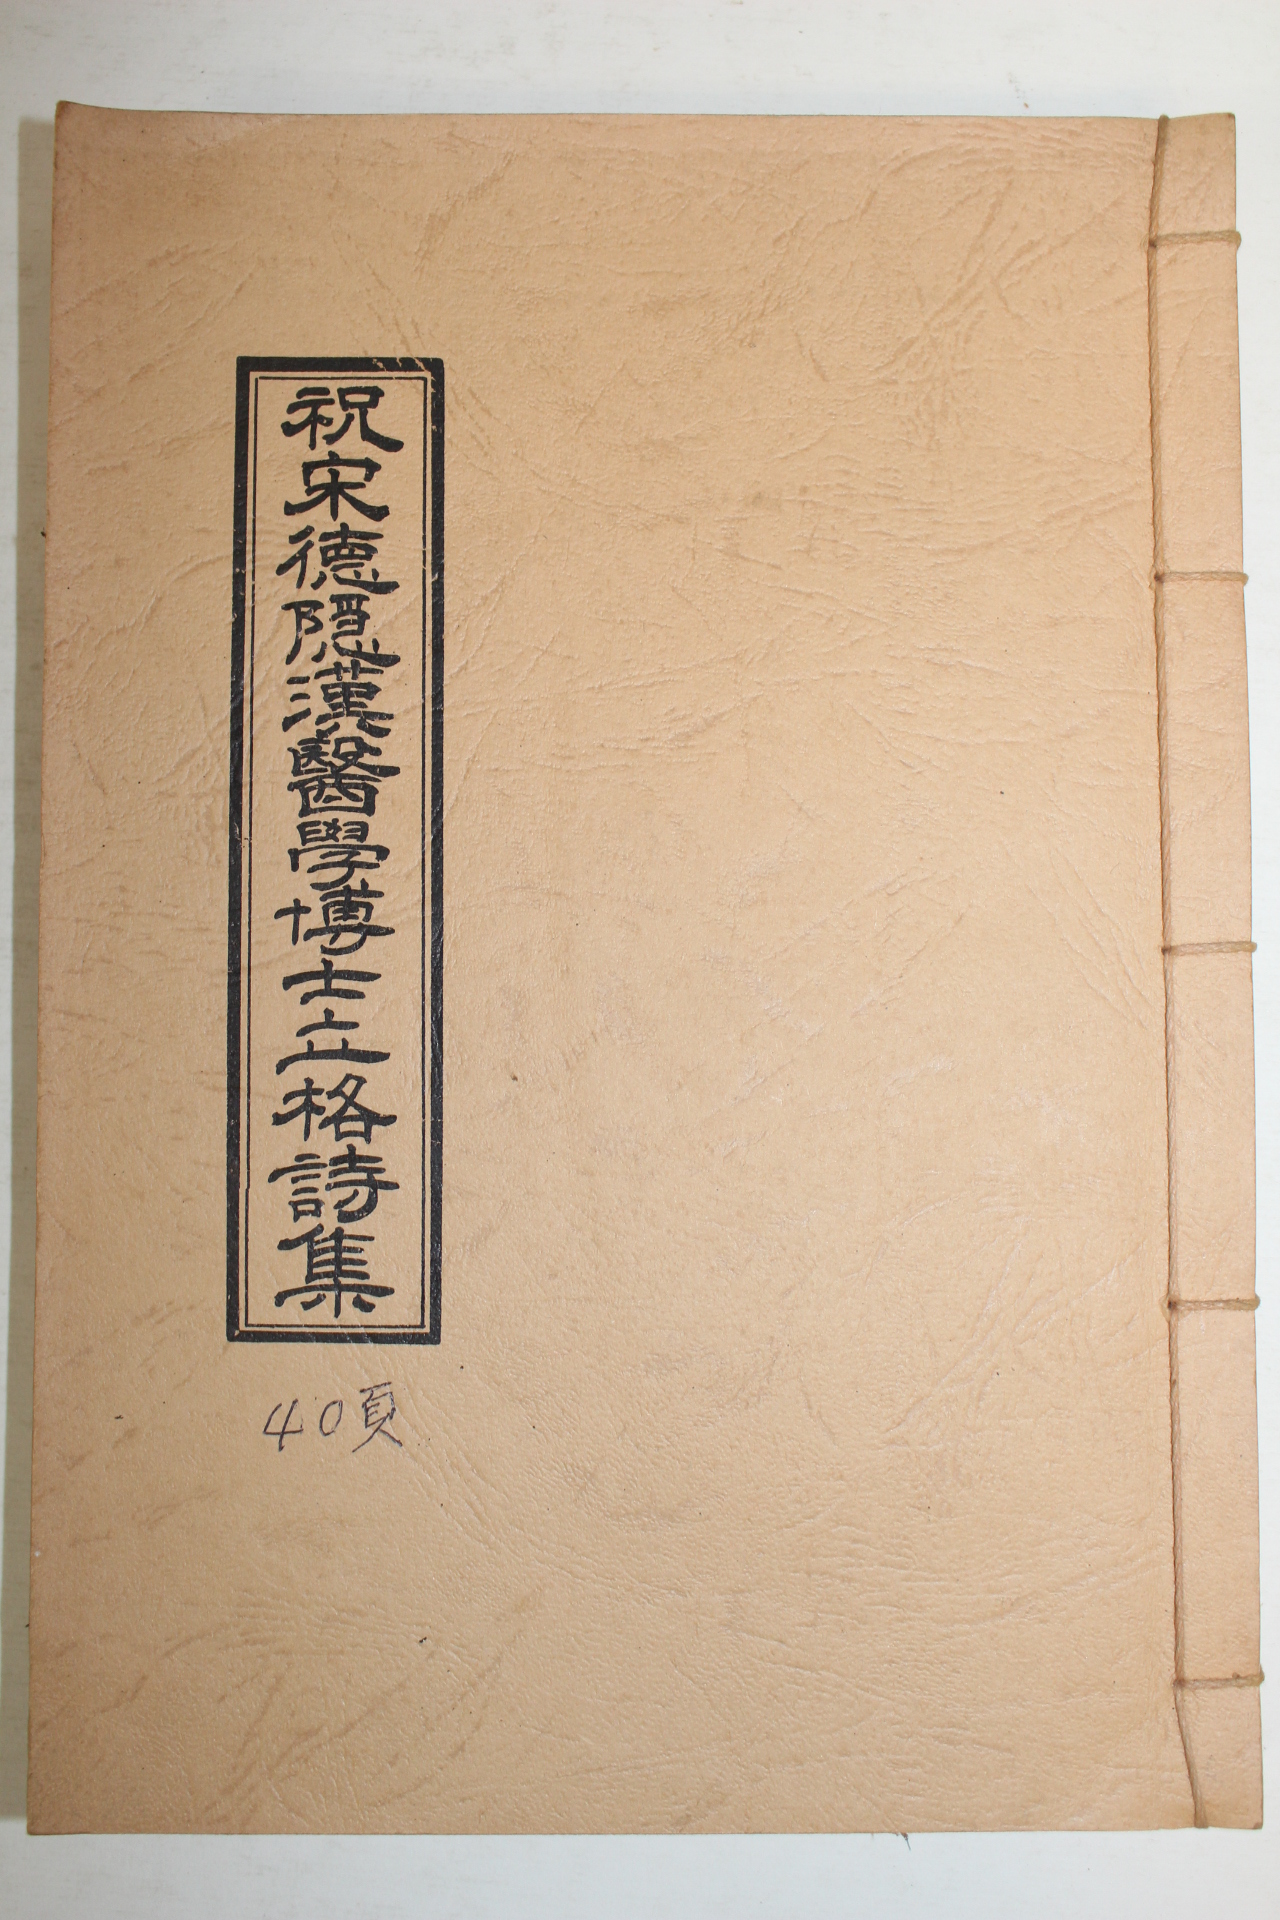 祝宋德隱漢醫學博士立格詩集
40頁